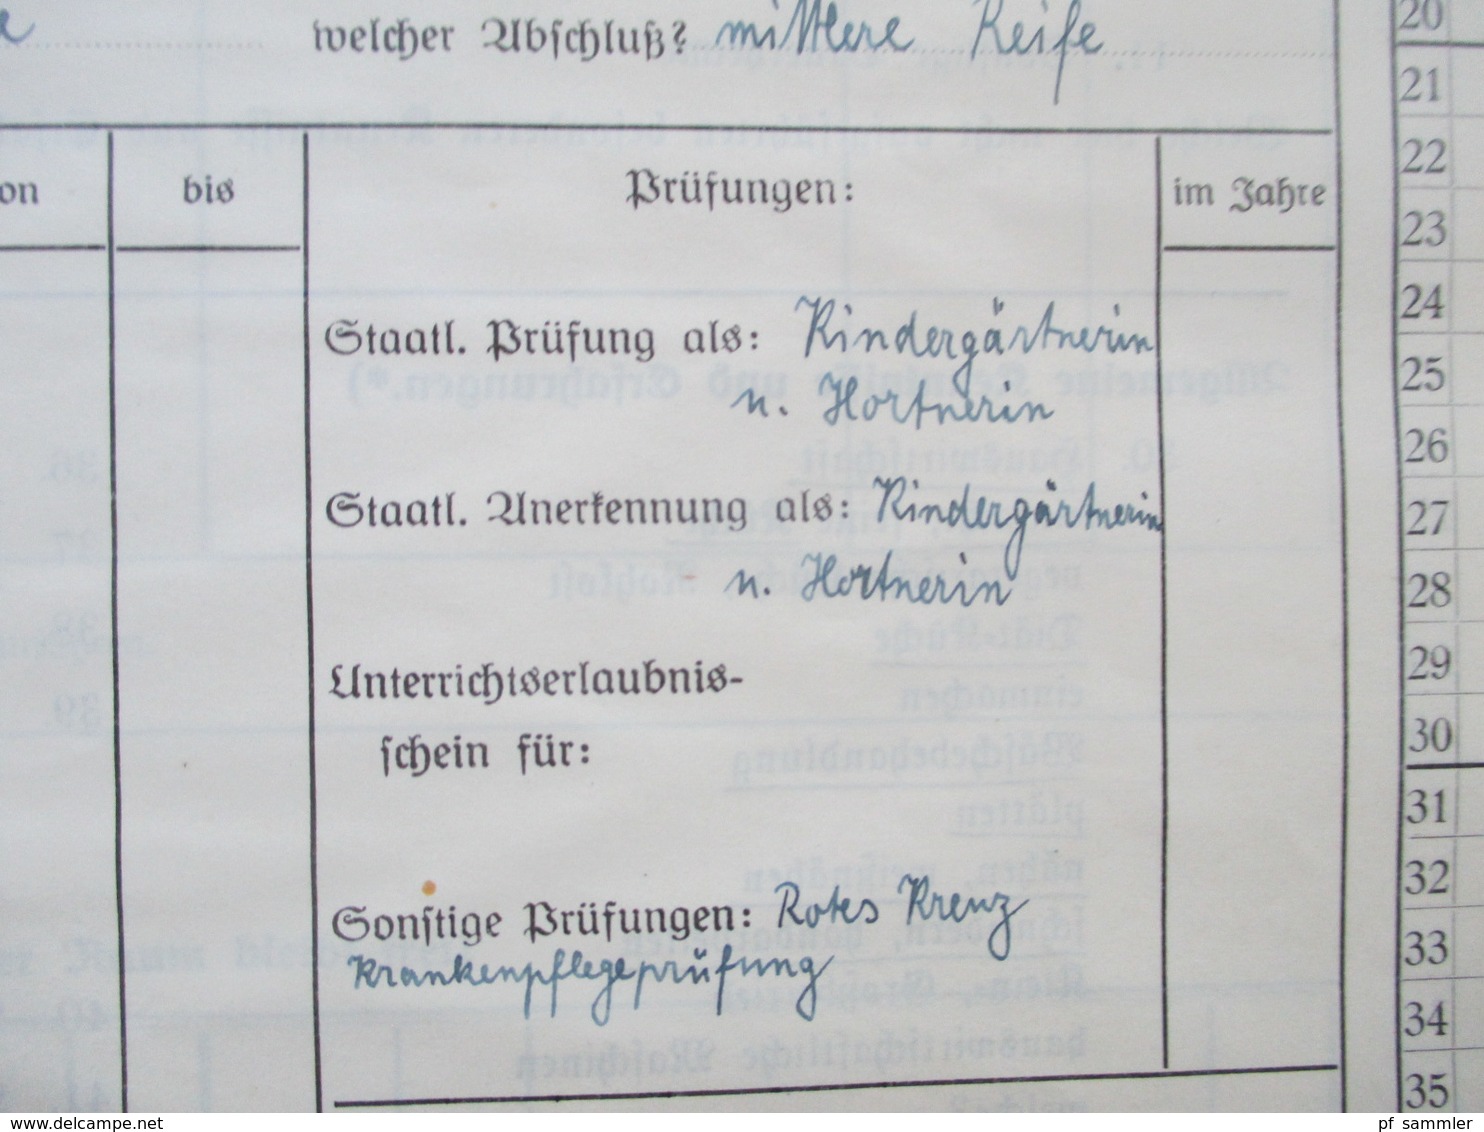 welcher Abschluß? mittlere Reife
on bis Prüfungen: im Jahre
Staatl. Prüfung als: Kindergärtnerin
u. Hortnerin
Staatl. Anerkennung als: Kindergärtnerin
u. Hortnerin
Unterrichtserlaubnis-
schein für:
Sonstige Prüfungen: Rotes Kreuz
Krankenpflegeprüfung
20
21
22
23
24
25
26
27
28
29
30
31
32
33
34
35
www.delcampe.net
pf_sammler